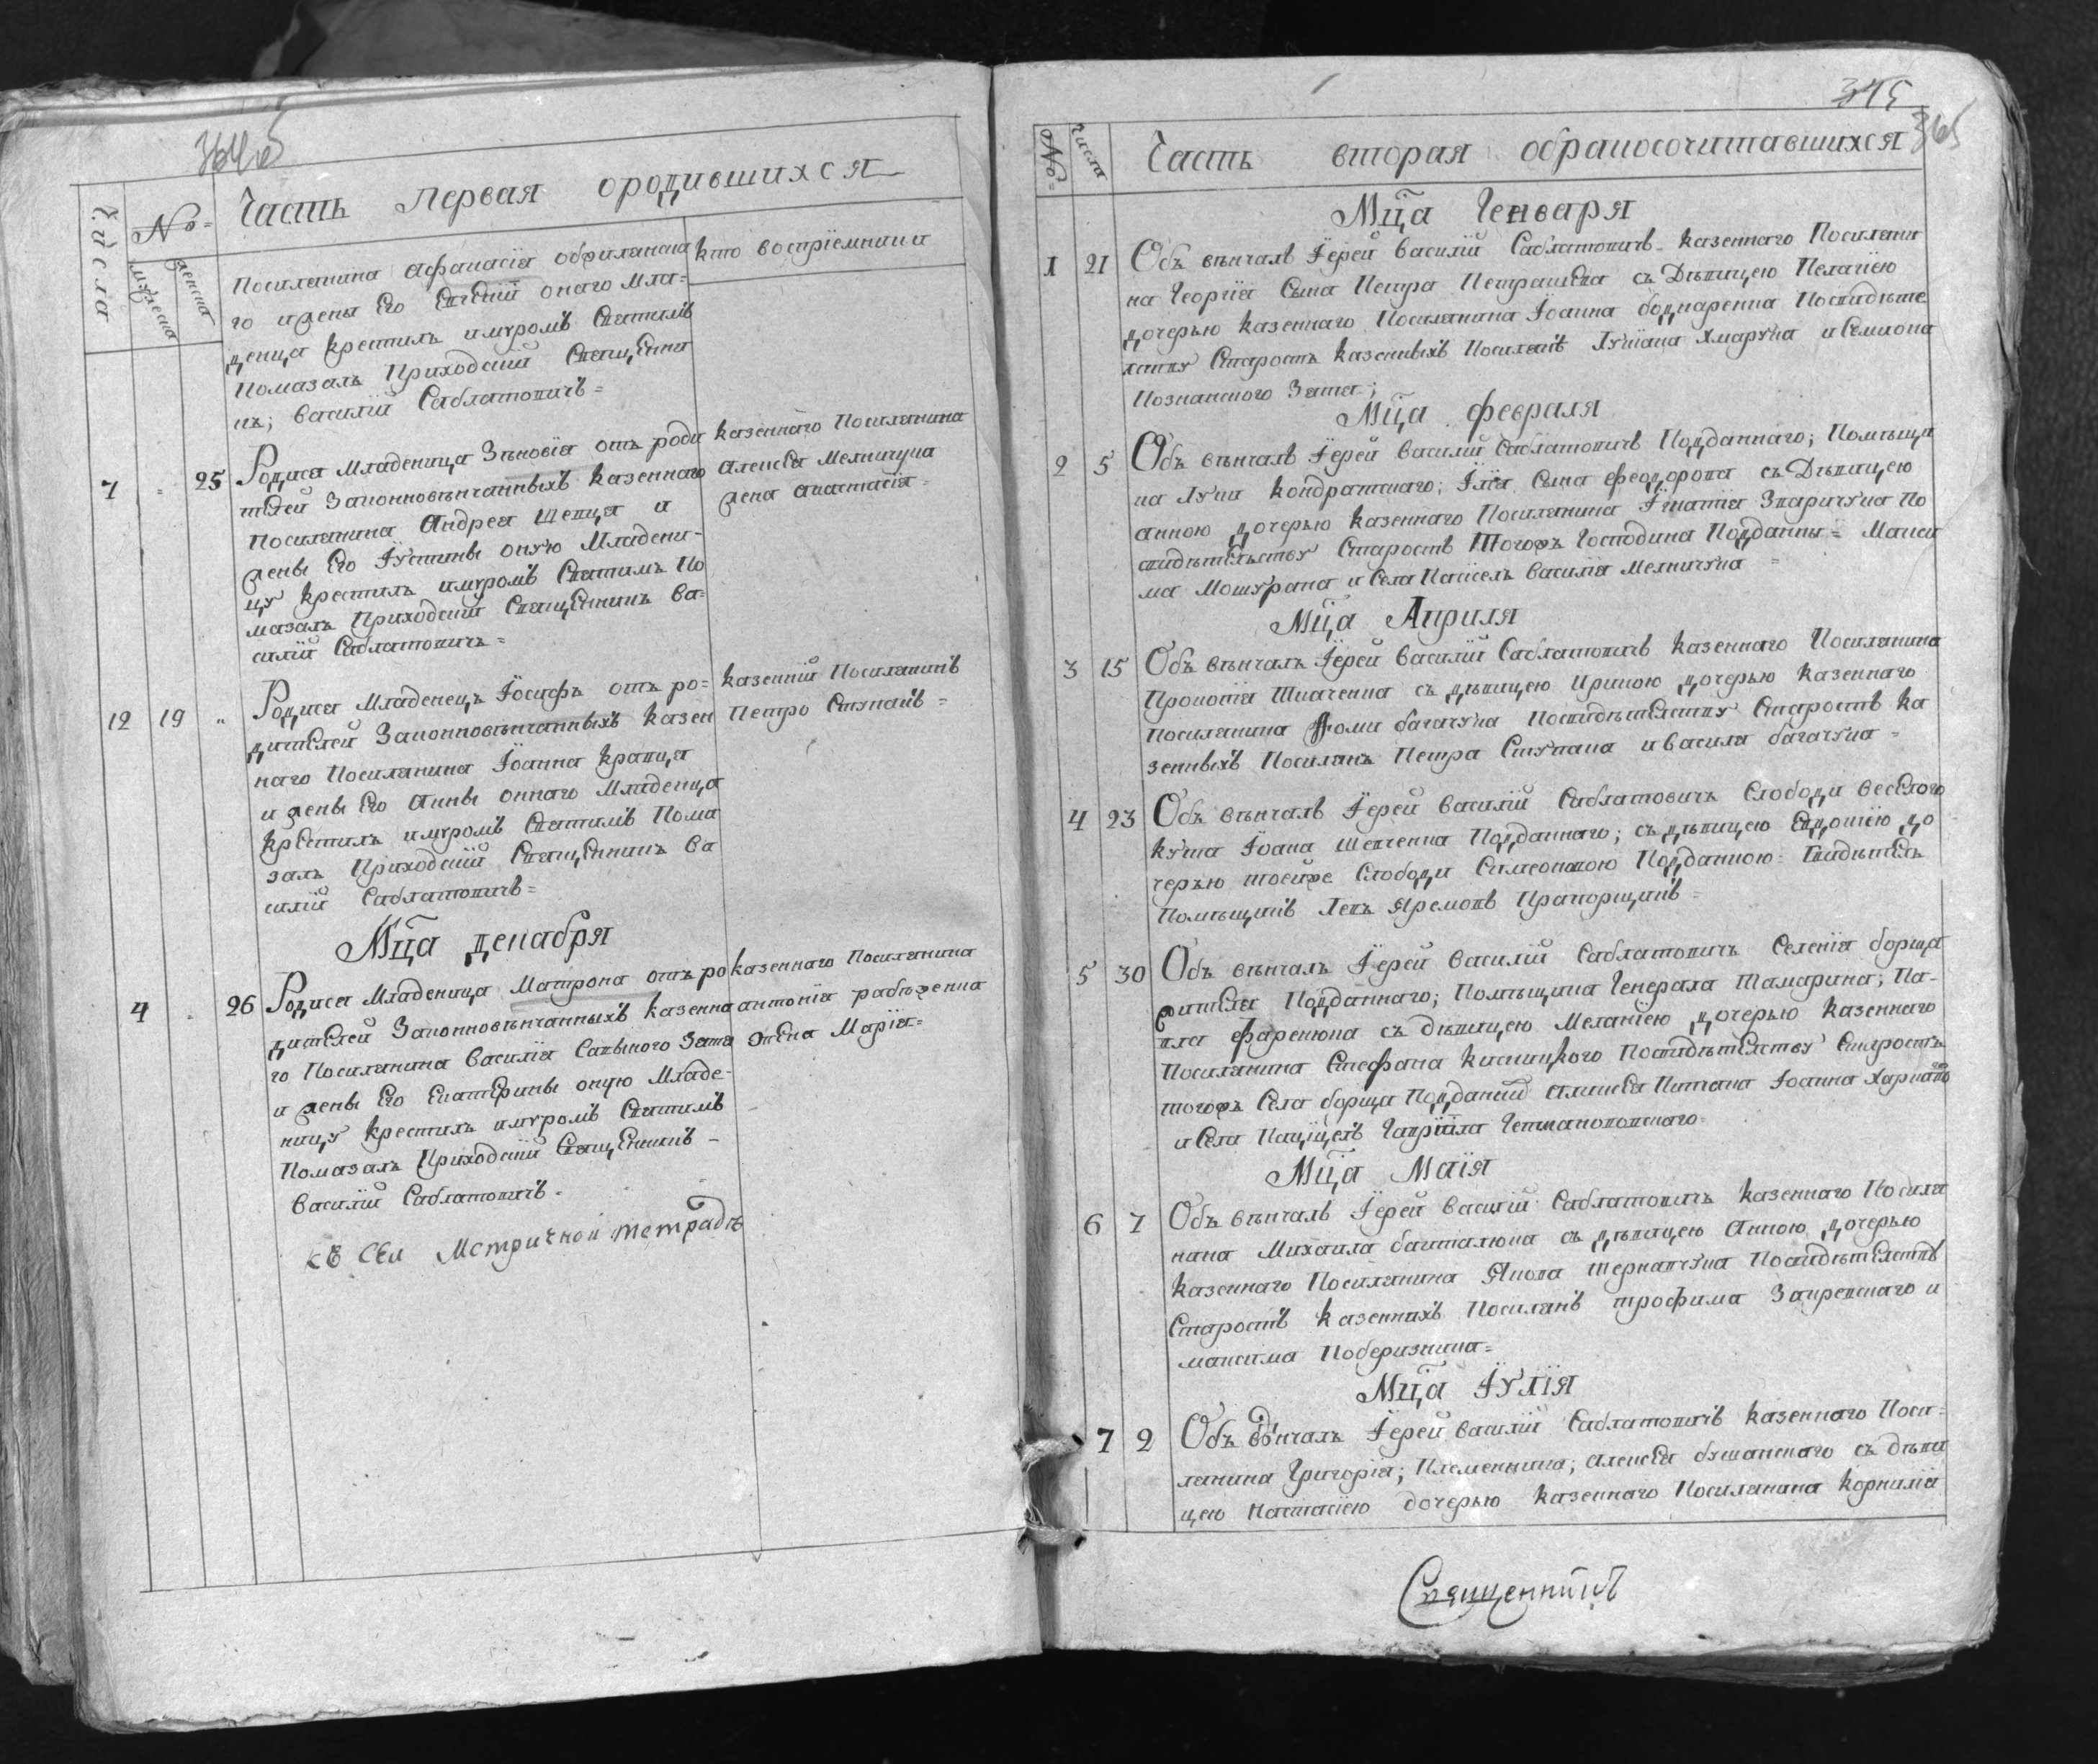 Часть первая ородившихся
Числа
№
мужеска
женска
кто восприемники
Посилянина Афанасія
го ижены Его Евгеніи онаго мла=
денца крестилъ имуромъ Святимъ
Помазалъ Приходскій Священни
къ; Василій Саблатовичъ=
7 = 25 Родися Младеница Зѣновіа отъ роди
телей Законновѣнчанныхъ казеннаго
Посилянина Андреа Шевца и
жены Его Іустины оную Младени-
цу крестилъ имуромъ Святимъ По
мазалъ Приходскій Священникъ Ва=
силій Саблатовичъ=
казеннаго Посилянина
Алексѣа Мелничука
жена Анастасіа=
12 19 " Родися Младенецъ Іосифъ отъ ро=
дителей Законновѣнчанныхъ казен
наго Посилянина Іоанна Кравца
и жены Его Анны оннаго Младенца
крестилъ имуромъ Святимъ Пома
залъ Приходскій Священникъ Ва
силій Саблатовичъ=
казенній Посилянинъ
Петро Ступакъ=
Мца декабря
4 . 26 Родися Младеница Матрона отъ ро
дителей Законновѣнчанныхъ казенна
го Посилянина Василіа Сапѣного Зятя
и жены Его Екатерины оную Младе-
ницу крестилъ имуромъ Святимъ
Помазалъ Приходскій Священникъ -
Василій Саблатовичъ.
казеннаго Посилянина
антоніа рабѣженка
жена Маріа=
къ сей Метричной тетрадѣ
345
365
№= числа
Часть вторая обракосочитавшихся
Мца Генваря
1 21 Объ вѣнчалъ Іерей Василій Саблатовичъ казеннаго Посиляни
на Георгіа Сына Петра Петрашева съ Дѣвицею Пелагіею
дочерью казеннаго Посилянина Іоанна боднаренка Посвидѣте
лству Старостъ казенныхъ Посилянъ Лукіана Хмарука и Семиона
Познанского Зятя;
Мца февраля
2 5 Объ вѣнчалъ Іерей Василій Саблатовичъ Подданнаго; Помѣщи
ка Луки Кондратского; Іліа Сына феодорова съ Дѣвицею
анною дочерью казеннаго Посилянина Ігнатіа По
свидѣтельству Старостъ Тогожъ Господина Подданны= Макси
ма Мошурана и Села Паіїселъ Василіа Мелничука =
Мца Априля
3 15 Объ вѣнчалъ Іерей Василій Саблатовичъ казеннаго Посилянина
Прокопіа Ткаченка съ дѣвицею Ириною дочерью казеннаго
Посилянина Фоми багачука Посвидѣтелству Старостъ ка
зенныхъ Посилянъ Петра Ступака и Василя багачука=
4 23 Объ вѣнчалъ Іерей Василій Саблатовичъ Слободи веселого
кута Іоана Шевченка Подданнаго; съ дѣвицею Евдокіею до
черью тоейже Слободи Симеоновою Подданною= Свидѣтель
Помѣщикъ Левъ Яремовъ Прапорщикъ=
5 30 Объ вѣнчалъ Іерей Василій Саблатовичъ Селеніа борща
жителя Подданнаго; Помѣщика Генерала Тамарина; Па-
вла фаренюка съ дѣвицею Меланіею дочерью казеннаго
Посилянина Стефана Посвидѣтелству Старостъ
тогожъ Села борща Подданій Алиисѣа Питчака Іоанна
и Села Паціцелъ Гавріила
Мца Маія
6 7 Объ вѣнчалъ Іерей Василій Саблатовичъ казеннаго Посиля
нина Михаила байталюка съ дѣвицею Анною дочерью
казеннаго Посилянина Якова Чернавчука Посвидѣтелствъ
Старостъ казеннихъ Посилянъ трофима Закревского и
максима Поберизника=
Мца Іулія
7 2 Объ вѣнчалъ Іерей Василій Саблатовичъ казеннаго Поси=
лянина Григоріа; Племенника; Алексѣа бушанского съ дѣви
цею Настасіею дочерью казеннаго Посилянина Корниліа
Священникъ